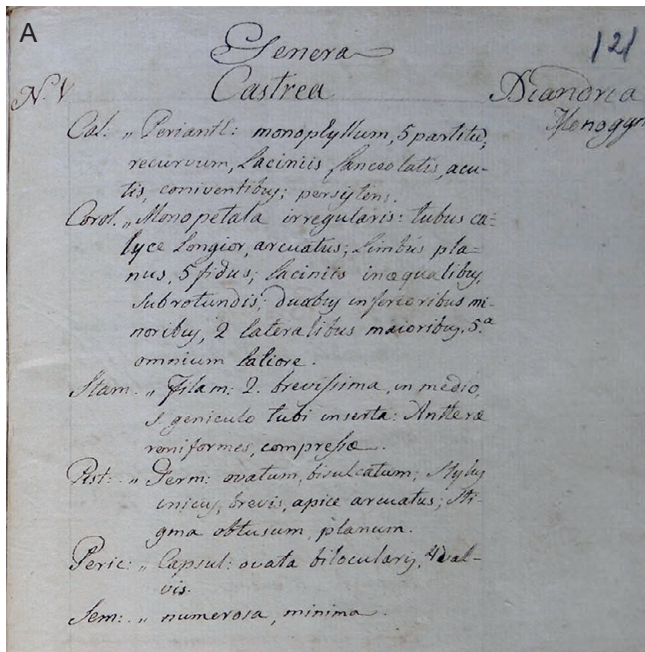 A
Genera
121
N. V
Castrea
Diandria
Monogyn
Cal: „ Perianth: monophyllum, 5 partitũ,
recurvum, Laciniis lanceolatis, acu-
tis, coniventibus; persistens.
Corol. „ Monopetala irregularis: tubus ca-
lyce longior, arcuatus; Limbus pla-
nus, 5 fidus; laciniis inæqualibus,
subrotundis; duabus inferioribus mi-
noribus, 2 lateralibus maioribus, 5.ª
omnium latiore.
Stam. „ Filam: 2. brevissima, in medio,
s. geniculo tubi inserta: Antheræ
reniformes, compressæ.
Pist: „ Germ: ovatum, bisulcatum; Stylus
unicus, brevis, apice arcuatus; Sti-
gma obtusum, planum.
Peric: „ Capsul: ovata bilocularis, 4 val-
vis.
Sem: „ numerosa, minima.